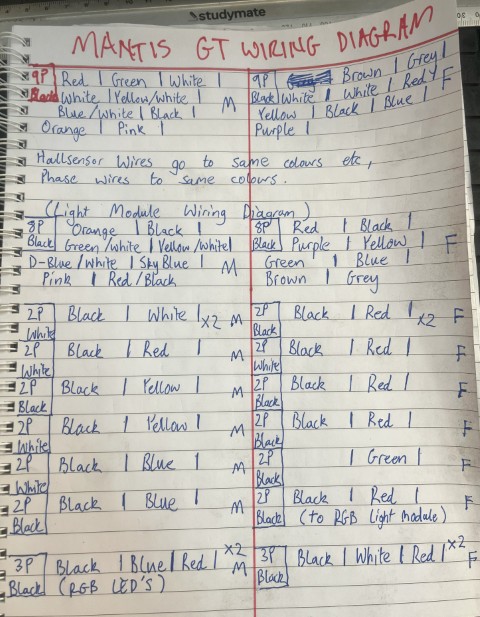 studymate
MANTIS GT WIRING DIAGRAM
9P Red | Green | White |
Black White | Yellow/White |
Blue/White | Black | M
Orange | Pink |
9P Brown | Grey |
Black White | White | Red | F
Yellow | Black | Blue |
Purple |
Hallsensor Wires go to same colours etc,
Phase wires to same colours.
(Light Module Wiring Diagram)
8P Orange | Black |
Black Green/White | Yellow/White |
D-Blue/White | Sky Blue | M
Pink | Red/Black
8P Red | Black |
Black Purple | Yellow | F
Green | Blue |
Brown | Grey
2P Black | White | x2 M
White
2P Black | Red | x2 F
Black
2P Black | Red | M
White
2P Black | Red | F
White
2P Black | Yellow | M
Black
2P Black | Red | F
Black
2P Black | Yellow | M
White
2P Black | Red | F
Black
2P Black | Blue | M
White
2P | Green | F
Black
2P Black | Blue | M
Black
2P Black | Red | F
Black (to RGB Light Module)
3P Black | Blue | Red | x2 M
Black (RGB LED'S)
3P Black | White | Red | x2 F
Black